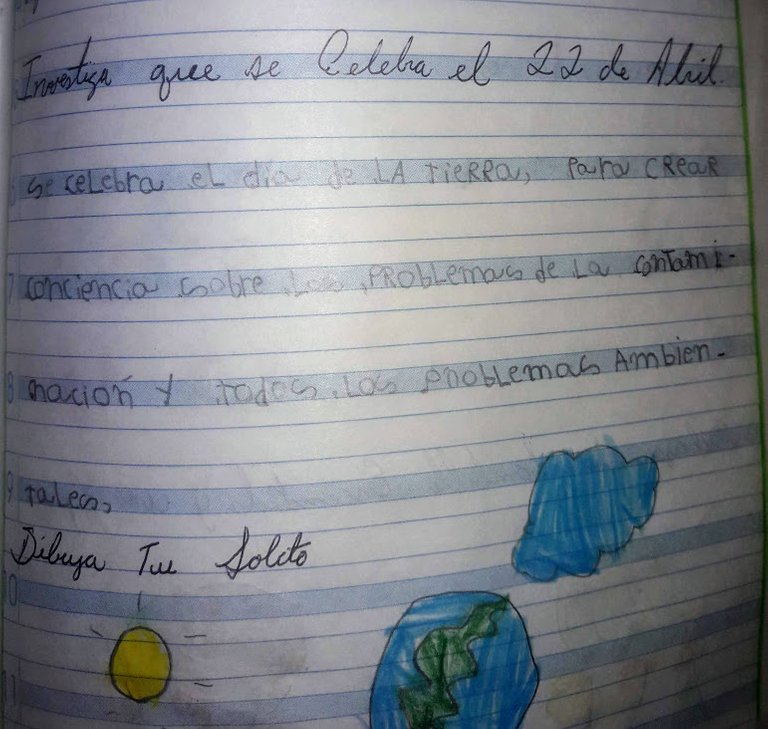 Investiga que se Celebra el 22 de Abril.
se celebra el dia de LA tierra, para crear
conciencia sobre los problemas de la contami-
nación y todos los problemas Ambien-
tales,
Dibuja Tu Solito